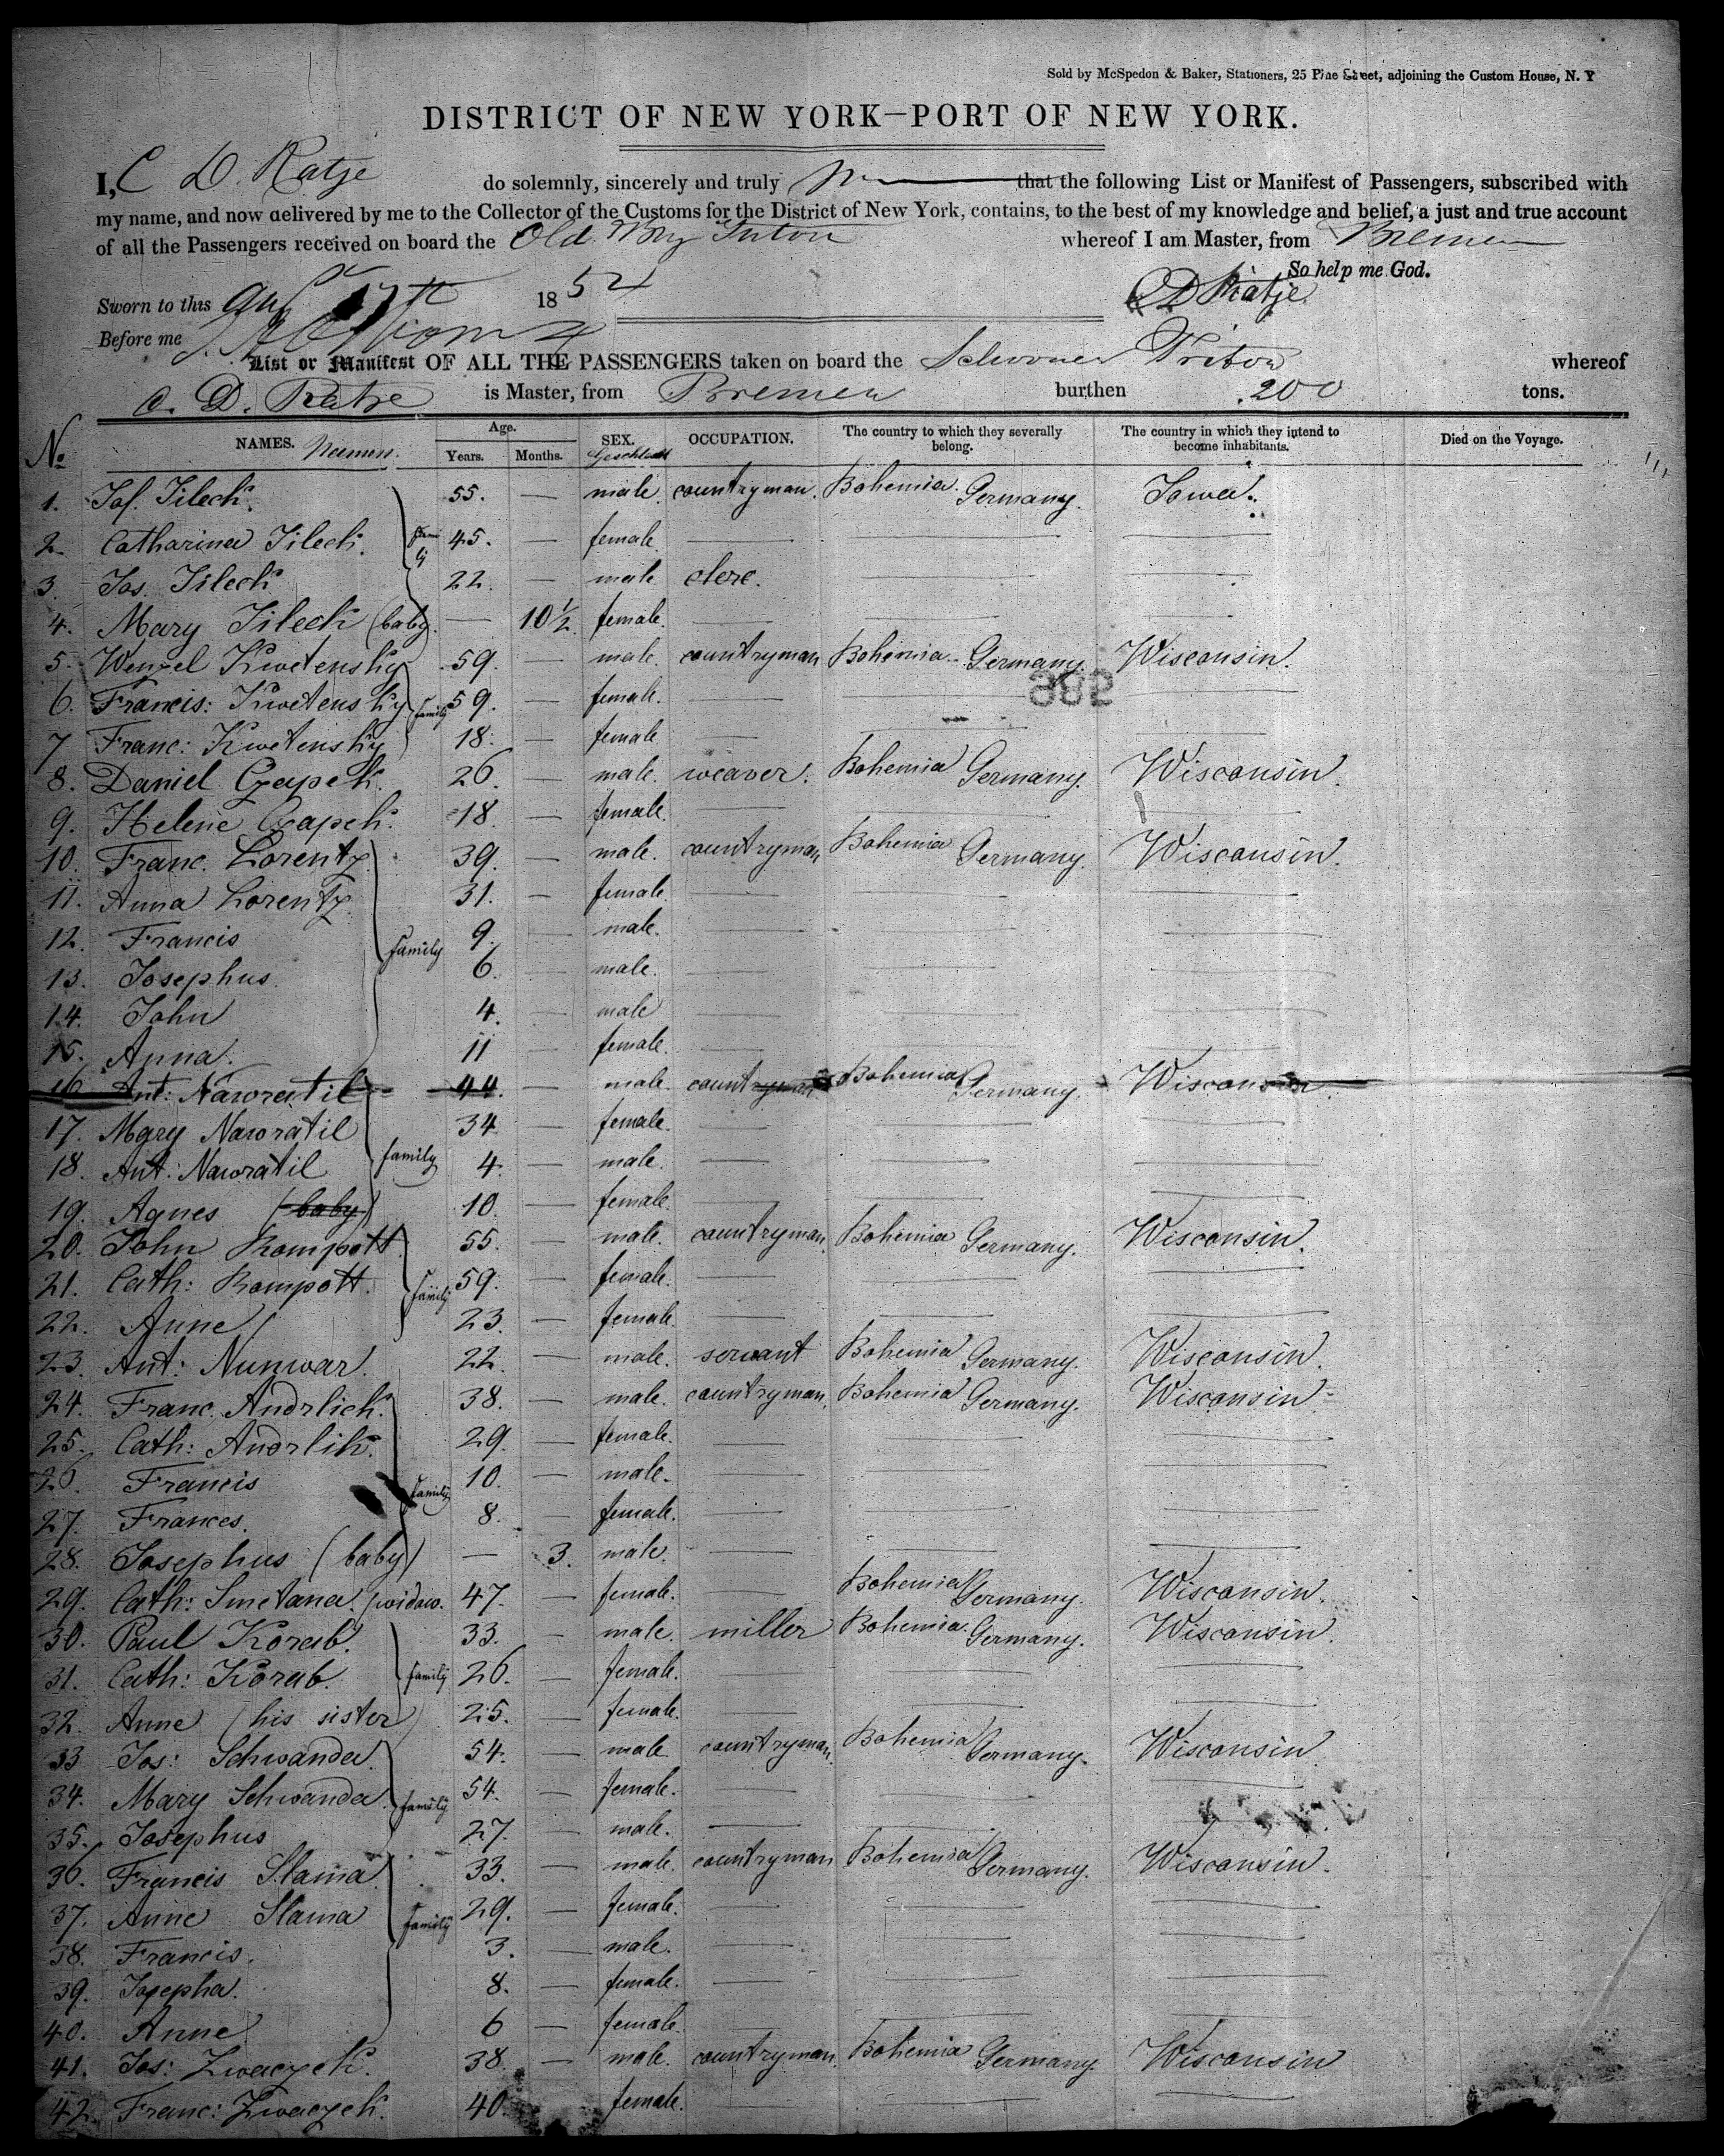 Sold by McSpedon & Baker, Stationers, 25 Pine Street, adjoining the Custom House, N. Y
DISTRICT OF NEW YORK—PORT OF NEW YORK.
I, C D. Ratje do solemnly, sincerely and truly that the following List or Manifest of Passengers, subscribed with
my name, and now delivered by me to the Collector of the Customs for the District of New York, contains, to the best of my knowledge and belief, a just and true account
of all the Passengers received on board the Old. whereof I am Master, from Bremen
So help me God.
Sworn to this 17th 1854 C D Ratje
Before me
List or Manifest OF ALL THE PASSENGERS taken on board the Schooner Triton whereof
C. D. Ratje is Master, from Bremen burthen 200 tons.
No NAMES. Namen. Age. Years. Months. SEX. Geschlecht OCCUPATION. The country to which they severally belong. The country in which they intend to become inhabitants. Died on the Voyage.
1. Jos. Tilech. 55. — male. countryman. Bohemia Germany. Iowa.
2. Catharina Tilech. family 45. — female.
3. Jos. Tilech 22. — male clerc.
4. Mary Tilech (baby. — 10 1/2. female.
5. Wenzel Kwetensky 59. — male. countryman Bohemia Germany. Wisconsin.
6. Francis: Kwetensky family 59. — female.
7 Franc: Kwetensky 18. — female
8. Daniel Czapek. 26. — male. weaver. Bohemia Germany. Wisconsin.
9. Helene Czapek. 18. — female.
10. Franc. Lorentz 39. — male. countryman Bohemia Germany. Wisconsin.
11. Anna Lorentz 31. — female.
12. Francis family 9. — male.
13. Josephus 6. — male.
14. John 4. — male
15. Anna. 11 — female.
16 Ant: Nawratil 44. — male. countryman Bohemia Germany. Wisconsin.
17. Mary Nawratil 34 — female.
18. Ant: Nawratil family 4. — male.
19. Agnes (baby) 10. — female.
20. John Rompott 55. — male. countryman. Bohemia Germany. Wisconsin.
21. Cath: Rompott. family 59. — female.
22. Anne 23. — female.
23. Ant: Nunwar. 22. — male. servant Bohemia Germany. Wisconsin.
24. Franc. Andrlich. 38. — male. countryman. Bohemia Germany. Wisconsin.
25. Cath: Andrlik. 29. — female.
26 Francis family 10. — male.
27. Frances. 8. — female.
28. Josephus (baby) — 3. male.
29. Cath: Smetana. (widow. 47. — female. Bohemia Germany. Wisconsin.
30. Paul Korab. 33. — male. miller Bohemia. Germany. Wisconsin.
31. Cath: Korab. family 26. — female.
32. Anne (his sister) 25. — female.
33 Jos: Schwanda. 54. — male countryman. Bohemia Germany. Wisconsin
34. Mary Schwanda. family 54. — female.
35. Josephus 27. — male.
36. Francis Slama 33. — male. countryman Bohemia Germany. Wisconsin.
37. Anne Slama family 29. — female.
38. Francis. 3. — male.
39. Josepha. 8. — female.
40. Anne 6 — female.
41. Jos: Zwaczek. 38. — male. countryman. Bohemia Germany. Wisconsin
42. Franc: Zwaczek. 40. female.